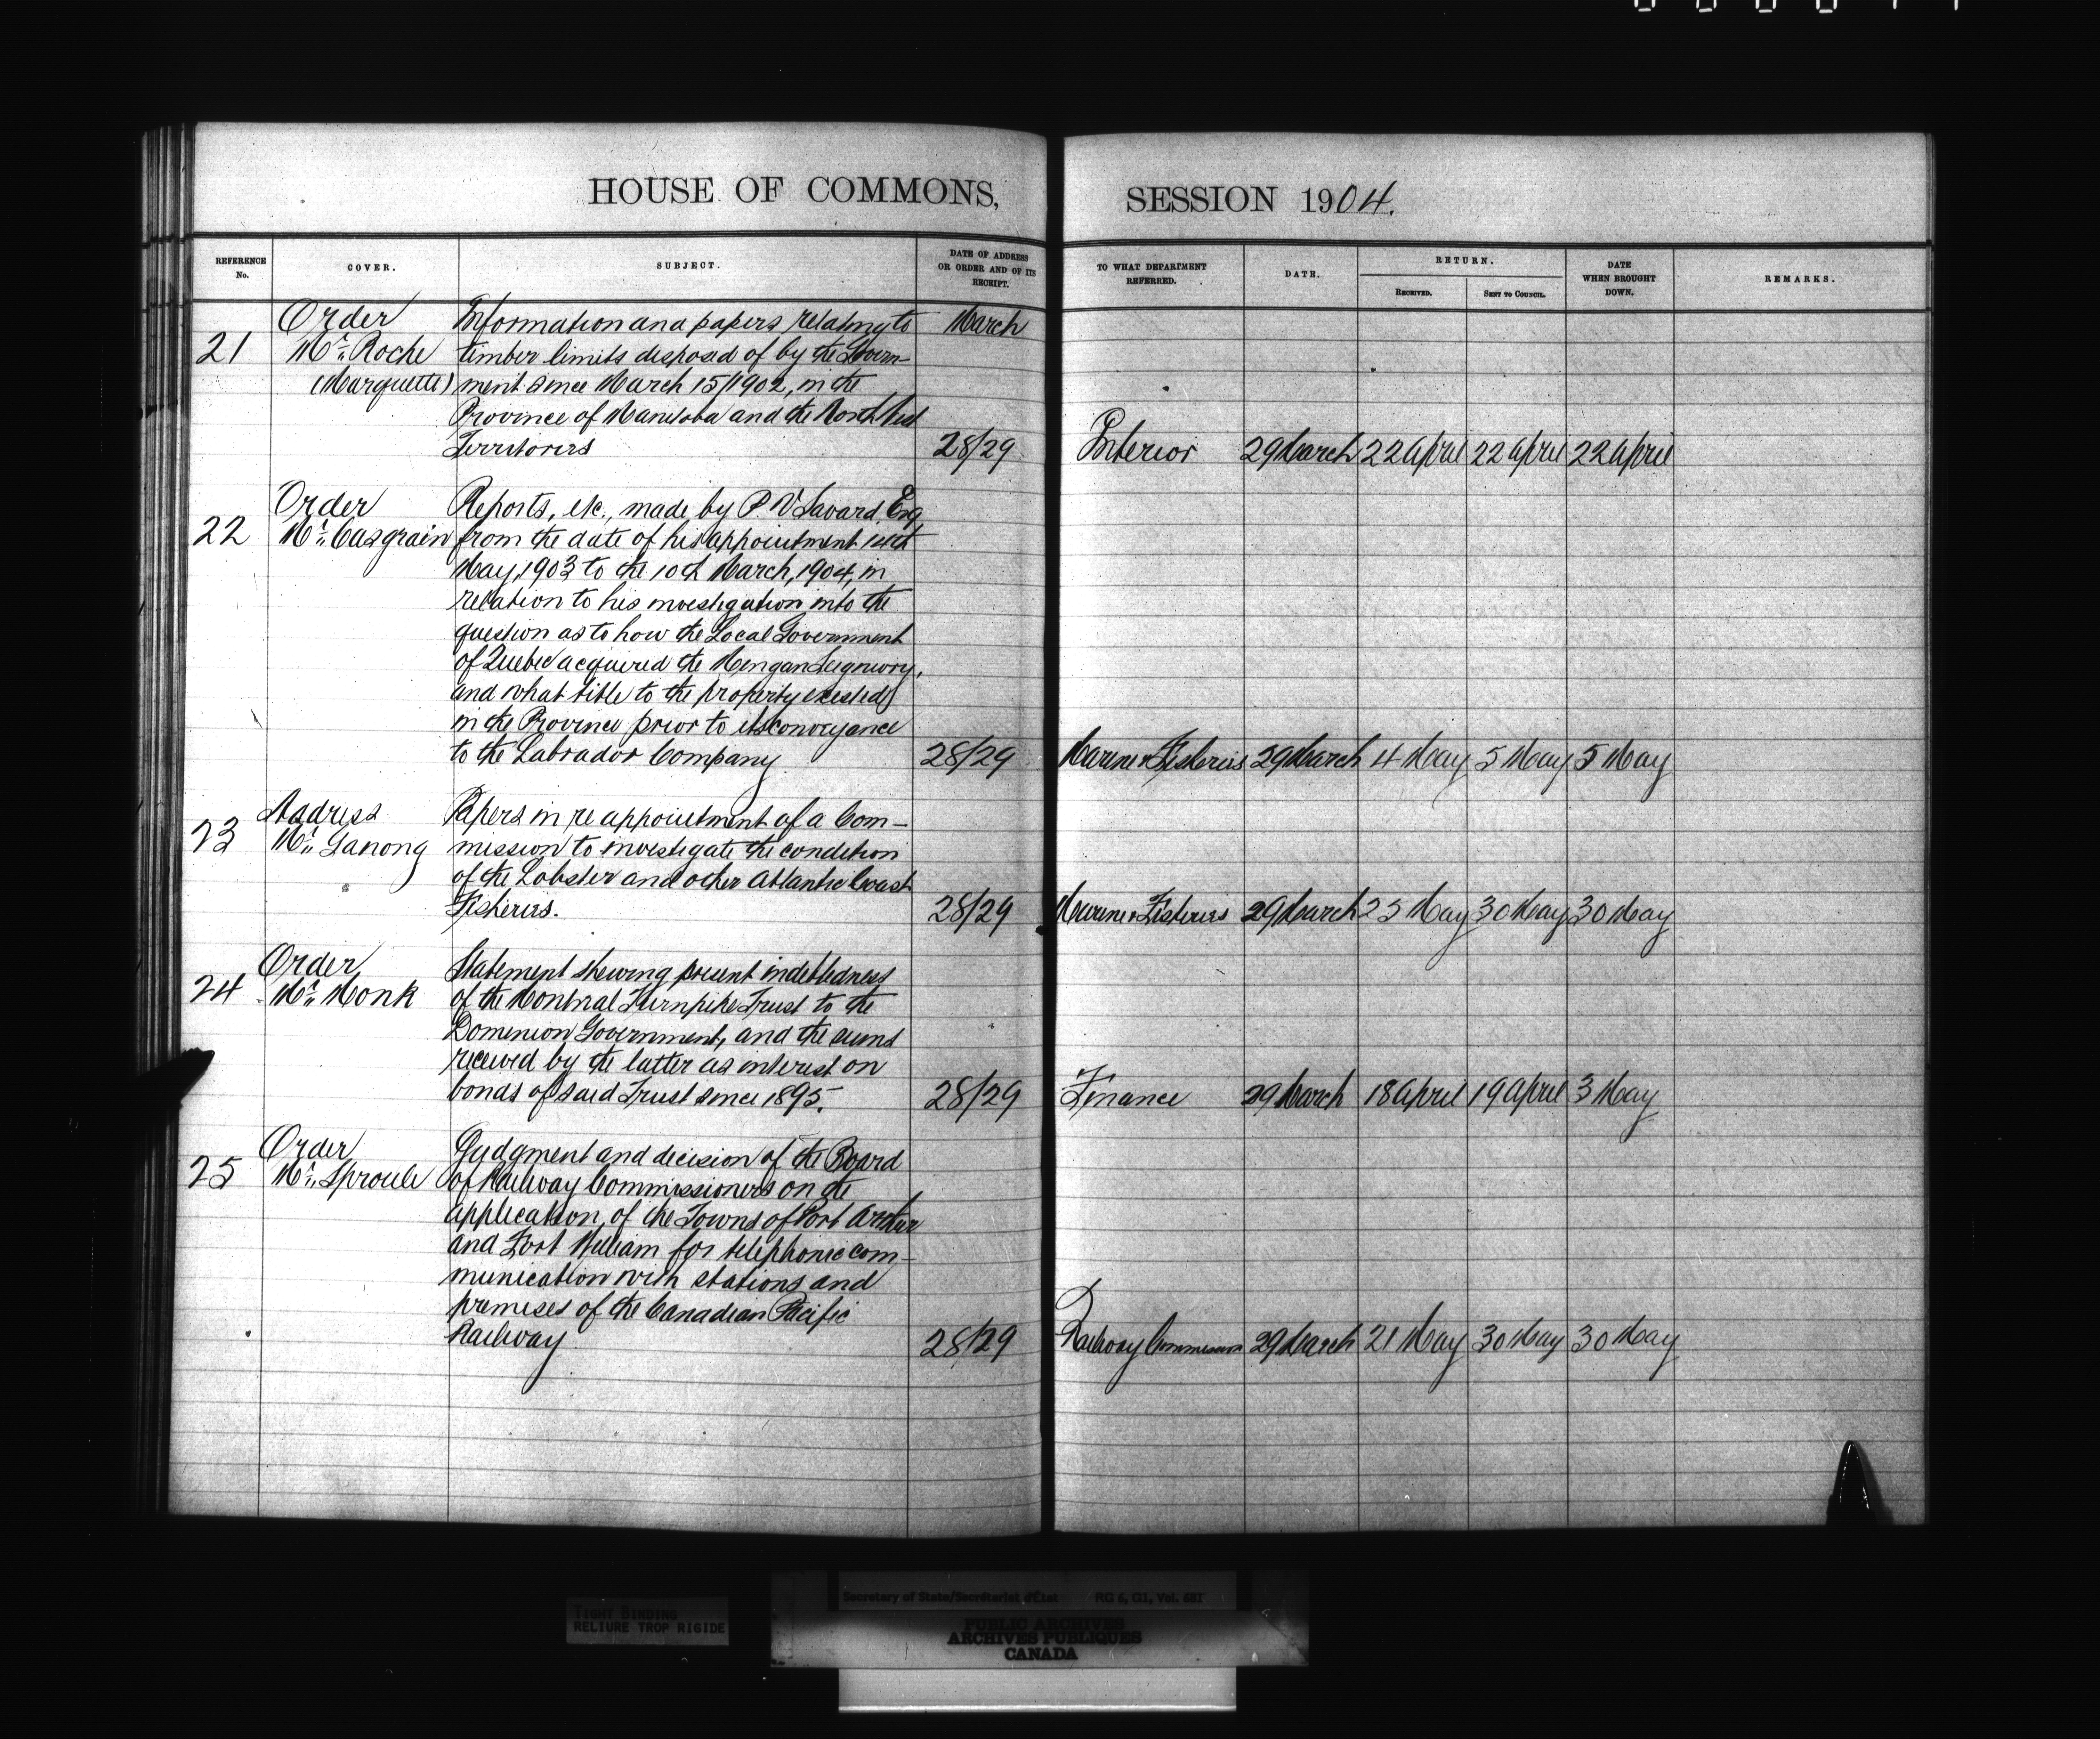 HOUSE OF COMMONS, SESSION 1904.
REFERENCE No. COVER. SUBJECT. DATE OF ADDRESS OR ORDER AND OF ITS RECEIPT. TO WHAT DEPARTMENT REFERRED. DATE. RETURN. RECEIVED. SENT TO COUNCIL. DATE WHEN BROUGHT DOWN. REMARKS.
Order Information and papers relating to March
21 Mr. Roche timber limits disposed of by the Govern-
(Marquette) ment since March 15/1902, in the
Province of Manitoba and the North West
Territories 28/29 Interior 29 March 22 April 22 April 22 April
Order Reports, etc., made by P. V Savard, Esq
22 Mr. Casgrain from the date of his appointment 14th
May, 1903 to the 10th March, 1904, in
relation to his investigation into the
question as to how the Local Government
of Quebec acquired the Mingan Seigniory,
and what title to the property existed
in the Province prior to its conveyance
to the Labrador Company 28/29 Marine & Fisheries 29 March 4 May 5 May 5 May
Address Papers in re appointment of a Com-
23 Mr. Ganong mission to investigate the condition
of the Lobster and other Atlantic Coast
Fisheries. 28/29 Marine & Fisheries 29 March 25 May 30 May 30 May
Order Statement shewing present indebtedness
24 Mr. Monk of the Montreal Turnpike Trust to the
Dominion Government, and the sums
received by the latter as interest on
bonds of said Trust since 1895. 28/29 Finance 29 March 18 April 19 April 3 May
Order Judgment and decision of the Board
25 Mr. Sproule of Railway Commissioners on the
application, of the Towns of Port Arthur
and Fort William for telephonic com-
munication with stations and
premises of the Canadian Pacific
Railway 28/29 Railway Commission 29 March 21 May 30 May 30 May
Secretary of State/Secrétariat d'État RG 6, G1, Vol. 681
TIGHT BINDING
RELIURE TROP RIGIDE
PUBLIC ARCHIVES
ARCHIVES PUBLIQUES
CANADA